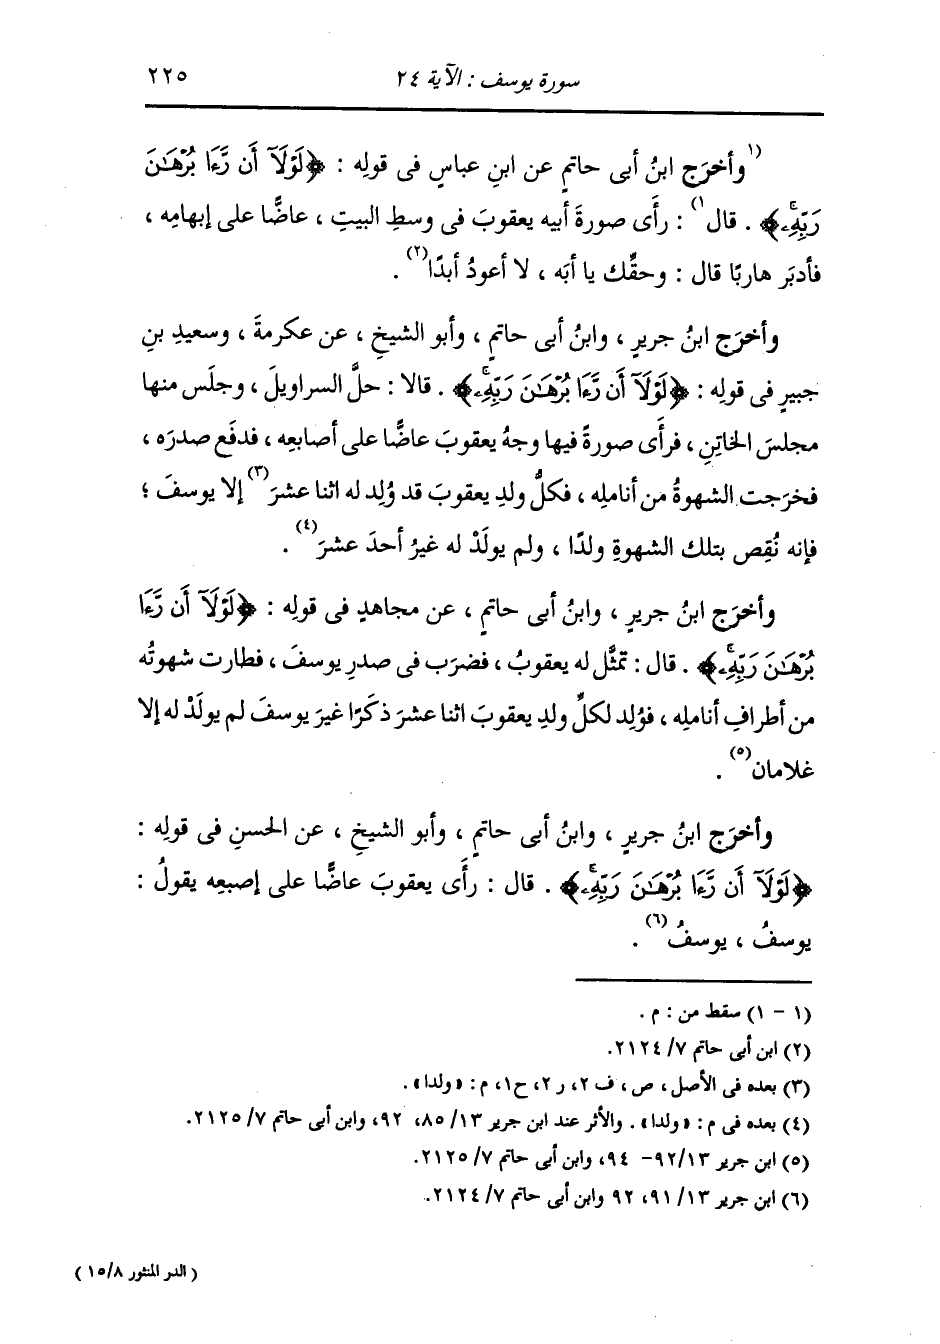 سورة يوسف : الآية ٢٤ ٢٢٥
(١وأخرَج ابنُ أبى حاتمٍ عن ابنِ عباسٍ فى قولِه : ﴿لَوْلَآ أَن رَّءَا بُرْهَـٰنَ
رَبِّهِۦۚ﴾ . قال١) : رأَى صورةَ أبيه يعقوبَ فى وسطِ البيتِ ، عاضًّا على إبهامِه ،
فأدبَر هاربًا قال : وحقِّك يا أبَه ، لا أعودُ أبدًا(٢) .
وأخرَج ابنُ جريرٍ ، وابنُ أبى حاتمٍ ، وأبو الشيخِ ، عن عكرمةَ ، وسعيدِ بنِ
جبيرٍ فى قولِه : ﴿لَوْلَآ أَن رَّءَا بُرْهَـٰنَ رَبِّهِۦۚ﴾ . قالا : حلَّ السراويلَ ، وجلَس منها
مجلسَ الخاتِنِ ، فرأَى صورةً فيها وجهُ يعقوبَ عاضًّا على أصابعِه ، فدفَع صدرَه ،
فخرَجت الشهوةُ من أناملِه ، فكلُّ ولدِ يعقوبَ قد وُلِد له اثنا عشرَ(٣) إلا يوسفَ ؛
فإنه نُقِص بتلك الشهوةِ ولدًا ، ولم يولَدْ له غيرُ أحدَ عشرَ(٤) .
وأخرَج ابنُ جريرٍ ، وابنُ أبى حاتمٍ ، عن مجاهدٍ فى قولِه : ﴿لَوْلَآ أَن رَّءَا
بُرْهَـٰنَ رَبِّهِۦۚ﴾ . قال : تمثَّل له يعقوبُ ، فضرَب فى صدرِ يوسفَ ، فطارت شهوتُه
من أطرافِ أناملِه ، فوُلِد لكلِّ ولدِ يعقوبَ اثنا عشرَ ذكرًا غيرَ يوسفَ لم يولَدْ له إلا
غلامان(٥) .
وأخرَج ابنُ جريرٍ ، وابنُ أبى حاتمٍ ، وأبو الشيخِ ، عن الحسنِ فى قولِه :
﴿لَوْلَآ أَن رَّءَا بُرْهَـٰنَ رَبِّهِۦۚ﴾ . قال : رأَى يعقوبَ عاضًّا على إصبعِه يقولُ :
يوسفُ ، يوسفُ(٦) .
(١ - ١) سقط من : م .
(٢) ابن أبى حاتم ٧/ ٢١٢٤.
(٣) بعده فى الأصل ، ص ، ف ٢، ر ٢، ح١، م : «ولدا» .
(٤) بعده فى م : «ولدا» . والأثر عند ابن جرير ١٣/ ٨٥، ٩٢، وابن أبى حاتم ٧/ ٢١٢٥.
(٥) ابن جرير ١٣/ ٩٢- ٩٤، وابن أبى حاتم ٧/ ٢١٢٥.
(٦) ابن جرير ١٣/ ٩١، ٩٢ وابن أبى حاتم ٧/ ٢١٢٤.
( الدر المنثور ١٥/٨ )